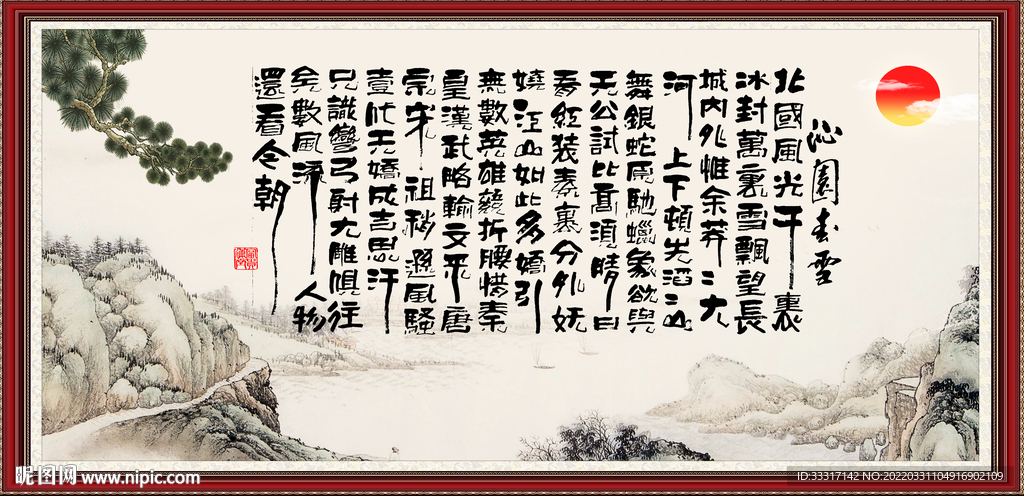 沁園春雪
北國風光千裏
冰封萬裏雪飄望長
城内外惟余莽々大
河上下頓失滔々山
舞銀蛇原馳蠟象欲與
天公試比高須晴日
看紅装素裹分外妖
嬈江山如此多嬌引
無數英雄競折腰惜秦
皇漢武略輸文采唐
宗宋祖稍遜風騷
壹代天嬌成吉思汗
只識彎弓射大雕俱往
矣數風流人物
還看今朝
昵图网 www.nipic.com
ID:33317142 NO:20220331104916902109